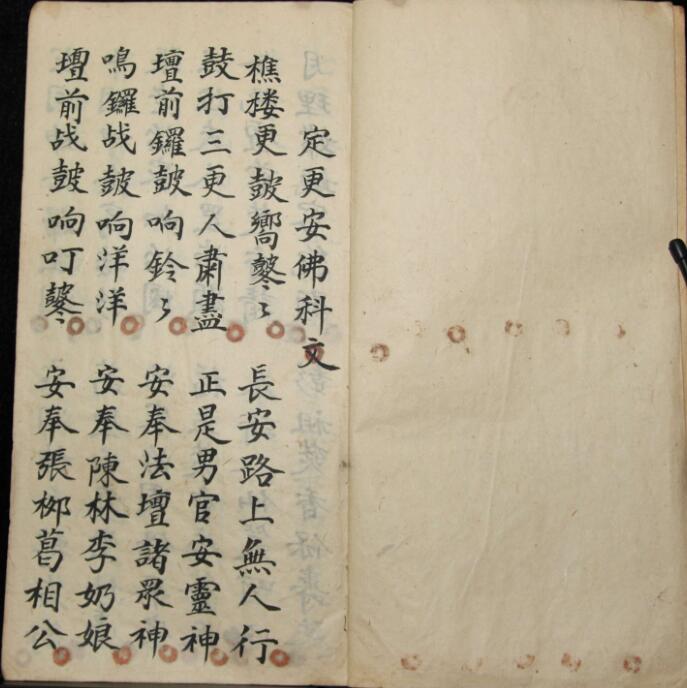 定更安佛科文
樵楼更皷嚮鼕〻 長安路上無人行
鼓打三更人肅盡 正是男官安靈神
壇前鑼皷响鈴〻 安奉法壇諸眾神
鳴鑼战皷响洋洋 安奉陳林李奶娘
壇前战皷响叮鼕 安奉張桺葛相公